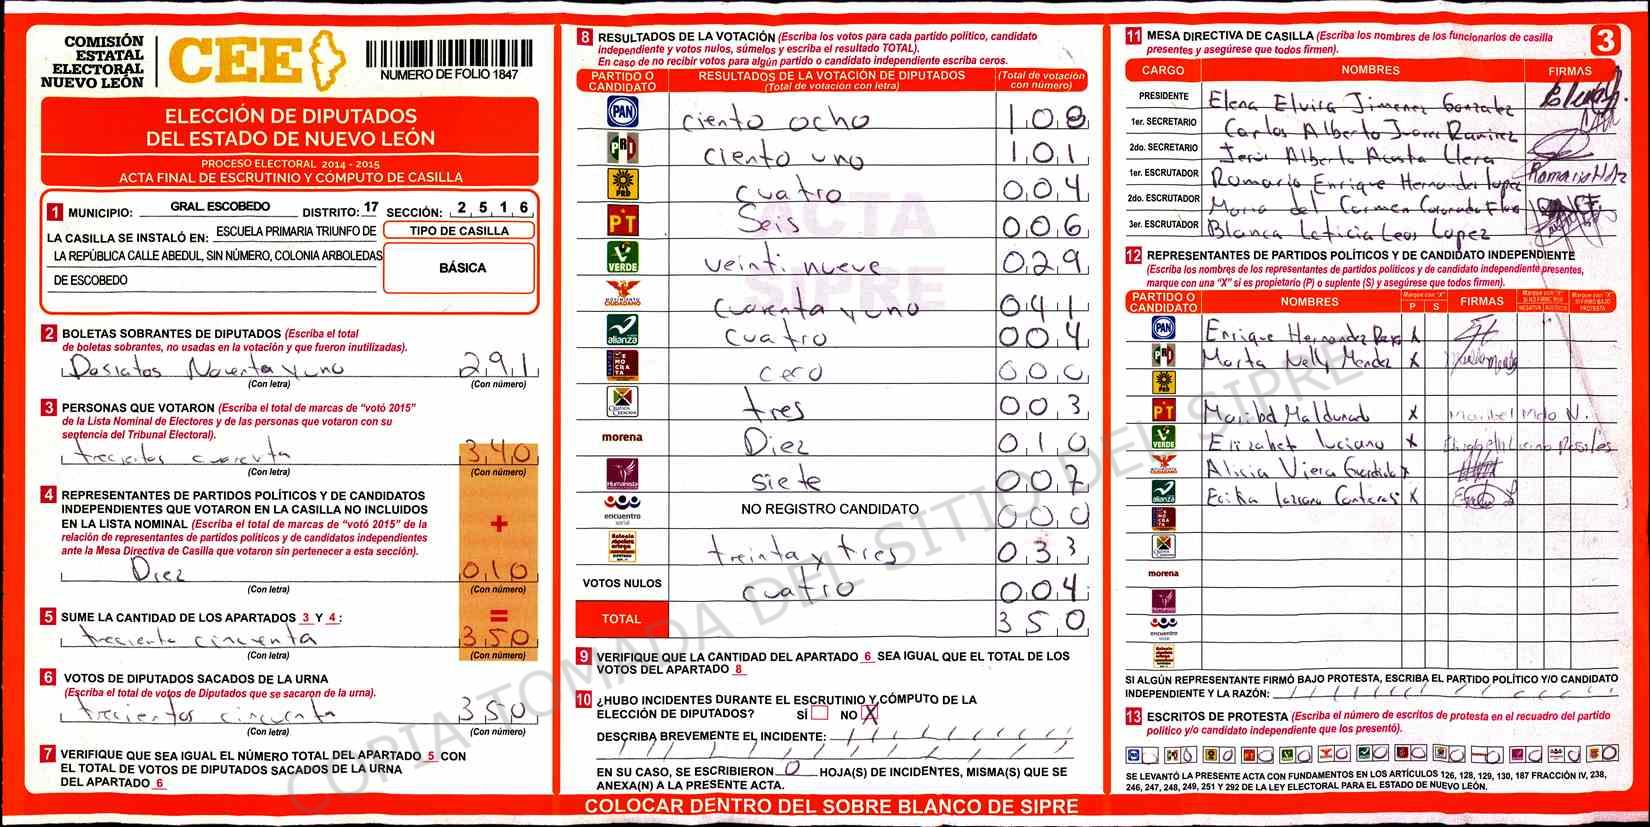 COMISIÓN
ESTATAL
ELECTORAL
NUEVO LEÓN
CEE
NUMERO DE FOLIO 1847
ELECCIÓN DE DIPUTADOS
DEL ESTADO DE NUEVO LEÓN
PROCESO ELECTORAL 2014 - 2015
ACTA FINAL DE ESCRUTINIO Y CÓMPUTO DE CASILLA
1 MUNICIPIO: GRAL. ESCOBEDO DISTRITO: 17 SECCIÓN: 2 5 1 6
LA CASILLA SE INSTALÓ EN: ESCUELA PRIMARIA TRIUNFO DE
LA REPÚBLICA CALLE ABEDUL, SIN NÚMERO, COLONIA ARBOLEDAS
DE ESCOBEDO
TIPO DE CASILLA
BÁSICA
2 BOLETAS SOBRANTES DE DIPUTADOS (Escriba el total
de boletas sobrantes, no usadas en la votación y que fueron inutilizadas).
Dosiatos Noventa y uno 291
(Con letra) (Con número)
3 PERSONAS QUE VOTARON (Escriba el total de marcas de “votó 2015”
de la Lista Nominal de Electores y de las personas que votaron con su
sentencia del Tribunal Electoral).
trecientos cuarenta 340
(Con letra) (Con número)
4 REPRESENTANTES DE PARTIDOS POLÍTICOS Y DE CANDIDATOS
INDEPENDIENTES QUE VOTARON EN LA CASILLA NO INCLUIDOS
EN LA LISTA NOMINAL (Escriba el total de marcas de “votó 2015” de la
relación de representantes de partidos políticos y de candidatos independientes
ante la Mesa Directiva de Casilla que votaron sin pertenecer a esta sección).
+
Diez 010
(Con letra) (Con número)
=
5 SUME LA CANTIDAD DE LOS APARTADOS 3 Y 4:
treciento cincuenta 350
(Con letra) (Con número)
6 VOTOS DE DIPUTADOS SACADOS DE LA URNA
(Escriba el total de votos de Diputados que se sacaron de la urna).
trecientos cincuenta 350
(Con letra) (Con número)
7 VERIFIQUE QUE SEA IGUAL EL NÚMERO TOTAL DEL APARTADO 5 CON
EL TOTAL DE VOTOS DE DIPUTADOS SACADOS DE LA URNA
DEL APARTADO 6
8 RESULTADOS DE LA VOTACIÓN (Escriba los votos para cada partido político, candidato
independiente y votos nulos, súmelos y escriba el resultado TOTAL).
En caso de no recibir votos para algún partido o candidato independiente escriba ceros.
PARTIDO O CANDIDATO RESULTADOS DE LA VOTACIÓN DE DIPUTADOS (Total de votación con letra) (Total de votación con número)
PAN ciento ocho 108
PRI ciento uno 101
PRD cuatro 004
PT Seis 006
VERDE veinti nueve 029
MOVIMIENTO CIUDADANO cuarenta y uno 041
alianza cuatro 004
DEMOCRATA cero 000
tres 003
morena Diez 010
Humanista siete 007
encuentro social NO REGISTRO CANDIDATO 000
treinta y tres 033
VOTOS NULOS cuatro 004
TOTAL 350
ACTA
SIPRE
9 VERIFIQUE QUE LA CANTIDAD DEL APARTADO 6 SEA IGUAL QUE EL TOTAL DE LOS
VOTOS DEL APARTADO 8
10 ¿HUBO INCIDENTES DURANTE EL ESCRUTINIO Y CÓMPUTO DE LA
ELECCIÓN DE DIPUTADOS? SÍ NO X
DESCRIBA BREVEMENTE EL INCIDENTE:
EN SU CASO, SE ESCRIBIERON 0 HOJA(S) DE INCIDENTES, MISMA(S) QUE SE
ANEXA(N) A LA PRESENTE ACTA.
COLOCAR DENTRO DEL SOBRE BLANCO DE SIPRE
11 MESA DIRECTIVA DE CASILLA (Escriba los nombres de los funcionarios de casilla
presentes y asegúrese que todos firmen).
3
CARGO NOMBRES FIRMAS
PRESIDENTE Elena Elvira Jimenez Gonzalez
1er. SECRETARIO Carlos Alberto Juarez Ramirez
2do. SECRETARIO Jesus Alberto Acosta Llera
1er. ESCRUTADOR Romario Enrique Hernandez Lopez Romario Hdz
2do. ESCRUTADOR Maria del Carmen Coronado
3er. ESCRUTADOR Blanca Leticia Leos Lopez
12 REPRESENTANTES DE PARTIDOS POLÍTICOS Y DE CANDIDATO INDEPENDIENTE
(Escriba los nombres de los representantes de partidos políticos y de candidato independiente presentes,
marque con una “X” si es propietario (P) o suplente (S) y asegúrese que todos firmen).
PARTIDO O CANDIDATO NOMBRES Marque con “X” P S FIRMAS
PAN Enrique Hernandez X
PRI Marta Nelly Mendez X
PRD
PT Maribel Maldonado X
VERDE Elizabet Luciano X
Alicia Viera X
alianza Erika Lazcano Contreras X
morena
Humanista
encuentro social
SI ALGÚN REPRESENTANTE FIRMÓ BAJO PROTESTA, ESCRIBA EL PARTIDO POLÍTICO Y/O CANDIDATO
INDEPENDIENTE Y LA RAZÓN:
13 ESCRITOS DE PROTESTA (Escriba el número de escritos de protesta en el recuadro del partido
político y/o candidato independiente que los presentó).
SE LEVANTÓ LA PRESENTE ACTA CON FUNDAMENTOS EN LOS ARTÍCULOS 126, 128, 129, 130, 187 FRACCIÓN IV, 238,
246, 247, 248, 249, 251 Y 292 DE LA LEY ELECTORAL PARA EL ESTADO DE NUEVO LEÓN.
COPIA TOMADA DEL SITIO DEL SIPRE